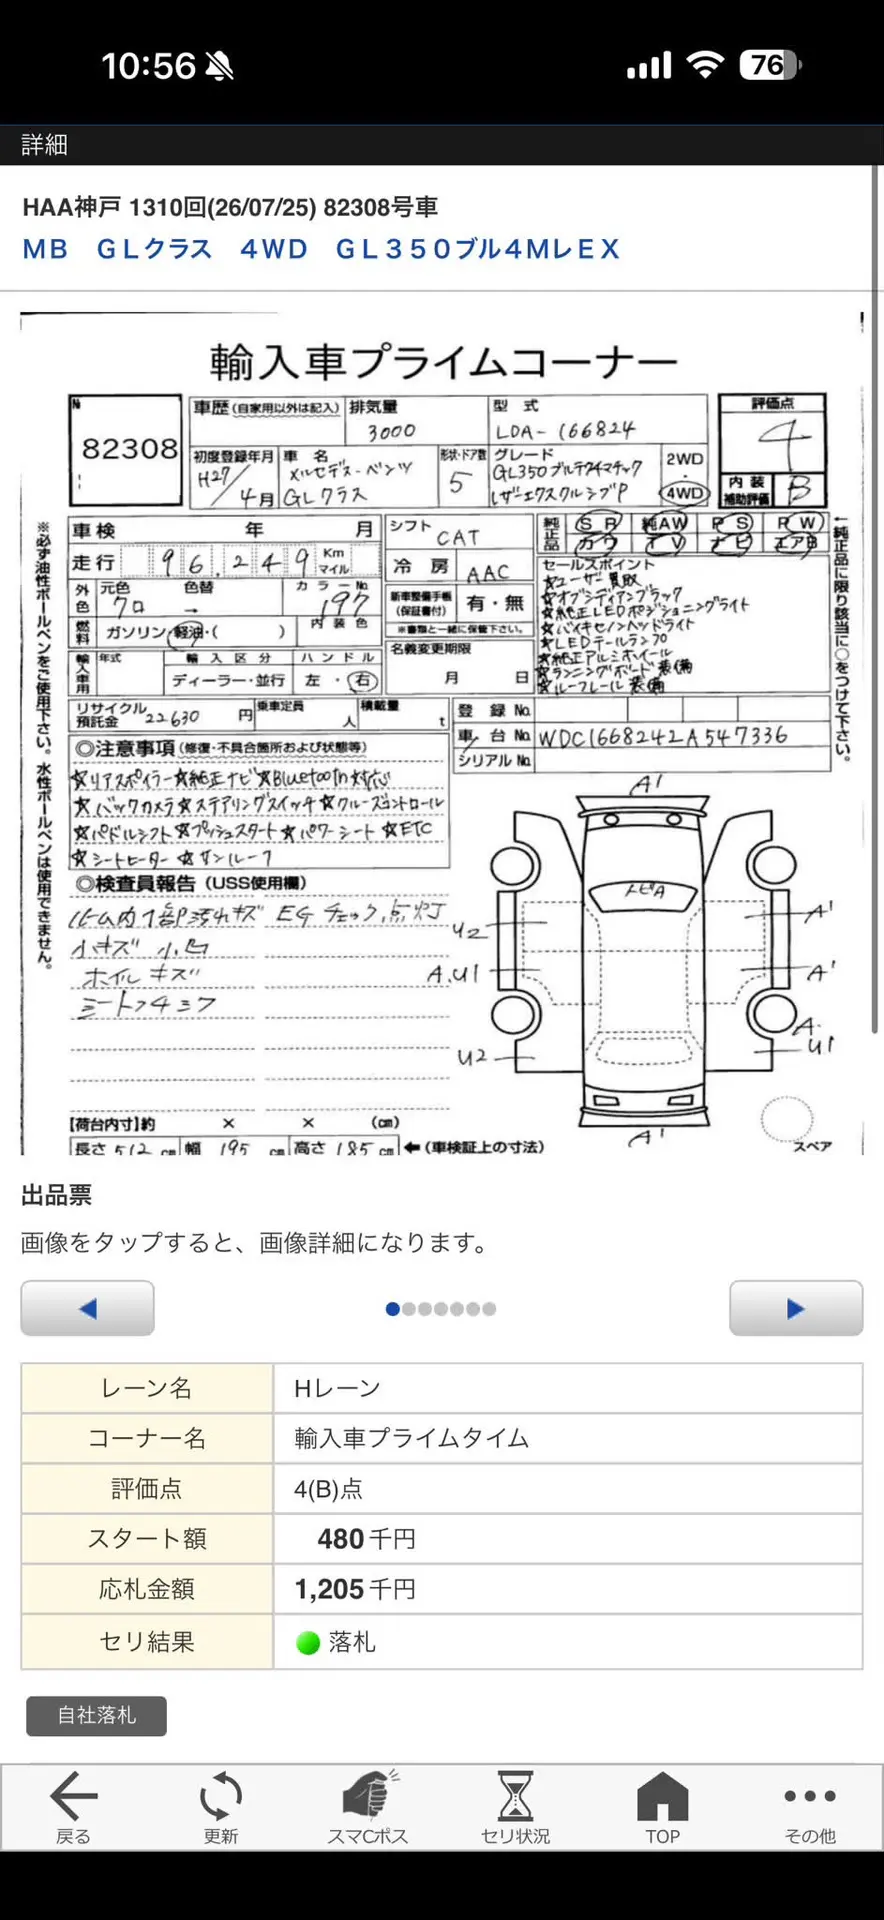 10:56
76
詳細
HAA神戸 1310回(26/07/25) 82308号車
ＭＢ　ＧＬクラス　４ＷＤ　ＧＬ３５０ブル４ＭレＥＸ
輸入車プライムコーナー
№
82308
車歴(自家用以外は記入)
排気量
3000
型式
LDA-166824
評価点
4
初度登録年月
H27/4月
車名
メルセデス-ベンツ
GLクラス
形状・ドア数
5
グレード
GL350ブルテック4マチック
レザーエクスクルシブP
2WD
4WD
内装
補助評価
B
車検 年 月
シフト
CAT
純正品
SR 純AW PS PW
カワ TV ナビ エアB
走行 96,249 Km マイル
冷房
AAC
セールスポイント
☆ユーザー買取
☆オブシディアンブラック
☆純正LEDポジショニングライト
☆バイキセノンヘッドライト
☆LEDテールランプ
☆純正アルミホイール
☆ランニングボード装備
☆ルーフレール装備
外色
元色
クロ
色替
→
カラーNo.
197
新車整備手帳
(保証書付)
有・無
※書類と一緒に保管下さい。
燃料
ガソリン・軽油・( )
内装色
名義変更期限
月 日
輸入車用
年式
輸入区分
ディーラー・並行
ハンドル
左・右
リサイクル預託金 22630 円
乗車定員 人
積載量 t
登録 No.
車台 No. WDC1668242A547336
シリアル No.
◎注意事項(修復・不具合箇所および状態等)
☆リアスポイラー☆純正ナビ☆Bluetooth対応
☆バックカメラ☆ステアリングスイッチ☆クルーズコントロール
☆パドルシフト☆プッシュスタート☆パワーシート☆ETC
☆シートヒーター☆サンルーフ
◎検査員報告(USS使用欄)
ルーム内1部汚れキズ EGチェック点灯
小キズ 小凹
ホイルキズ
シートスレシワ
A1
トビA
U2
A1
A.U1
A1
U2
A.
U1
A1
スペア
※必ず油性ボールペンをご使用下さい。水性ボールペンは使用できません。
←純正品に限り該当に○をつけて下さい。
【荷台内寸】約 × × (cm)
長さ 512 cm 幅 195 cm 高さ 185 cm ←(車検証上の寸法)
出品票
画像をタップすると、画像詳細になります。
レーン名 Hレーン
コーナー名 輸入車プライムタイム
評価点 4(B)点
スタート額 480千円
応札金額 1,205千円
セリ結果 落札
自社落札
戻る
更新
スマCポス
セリ状況
TOP
その他